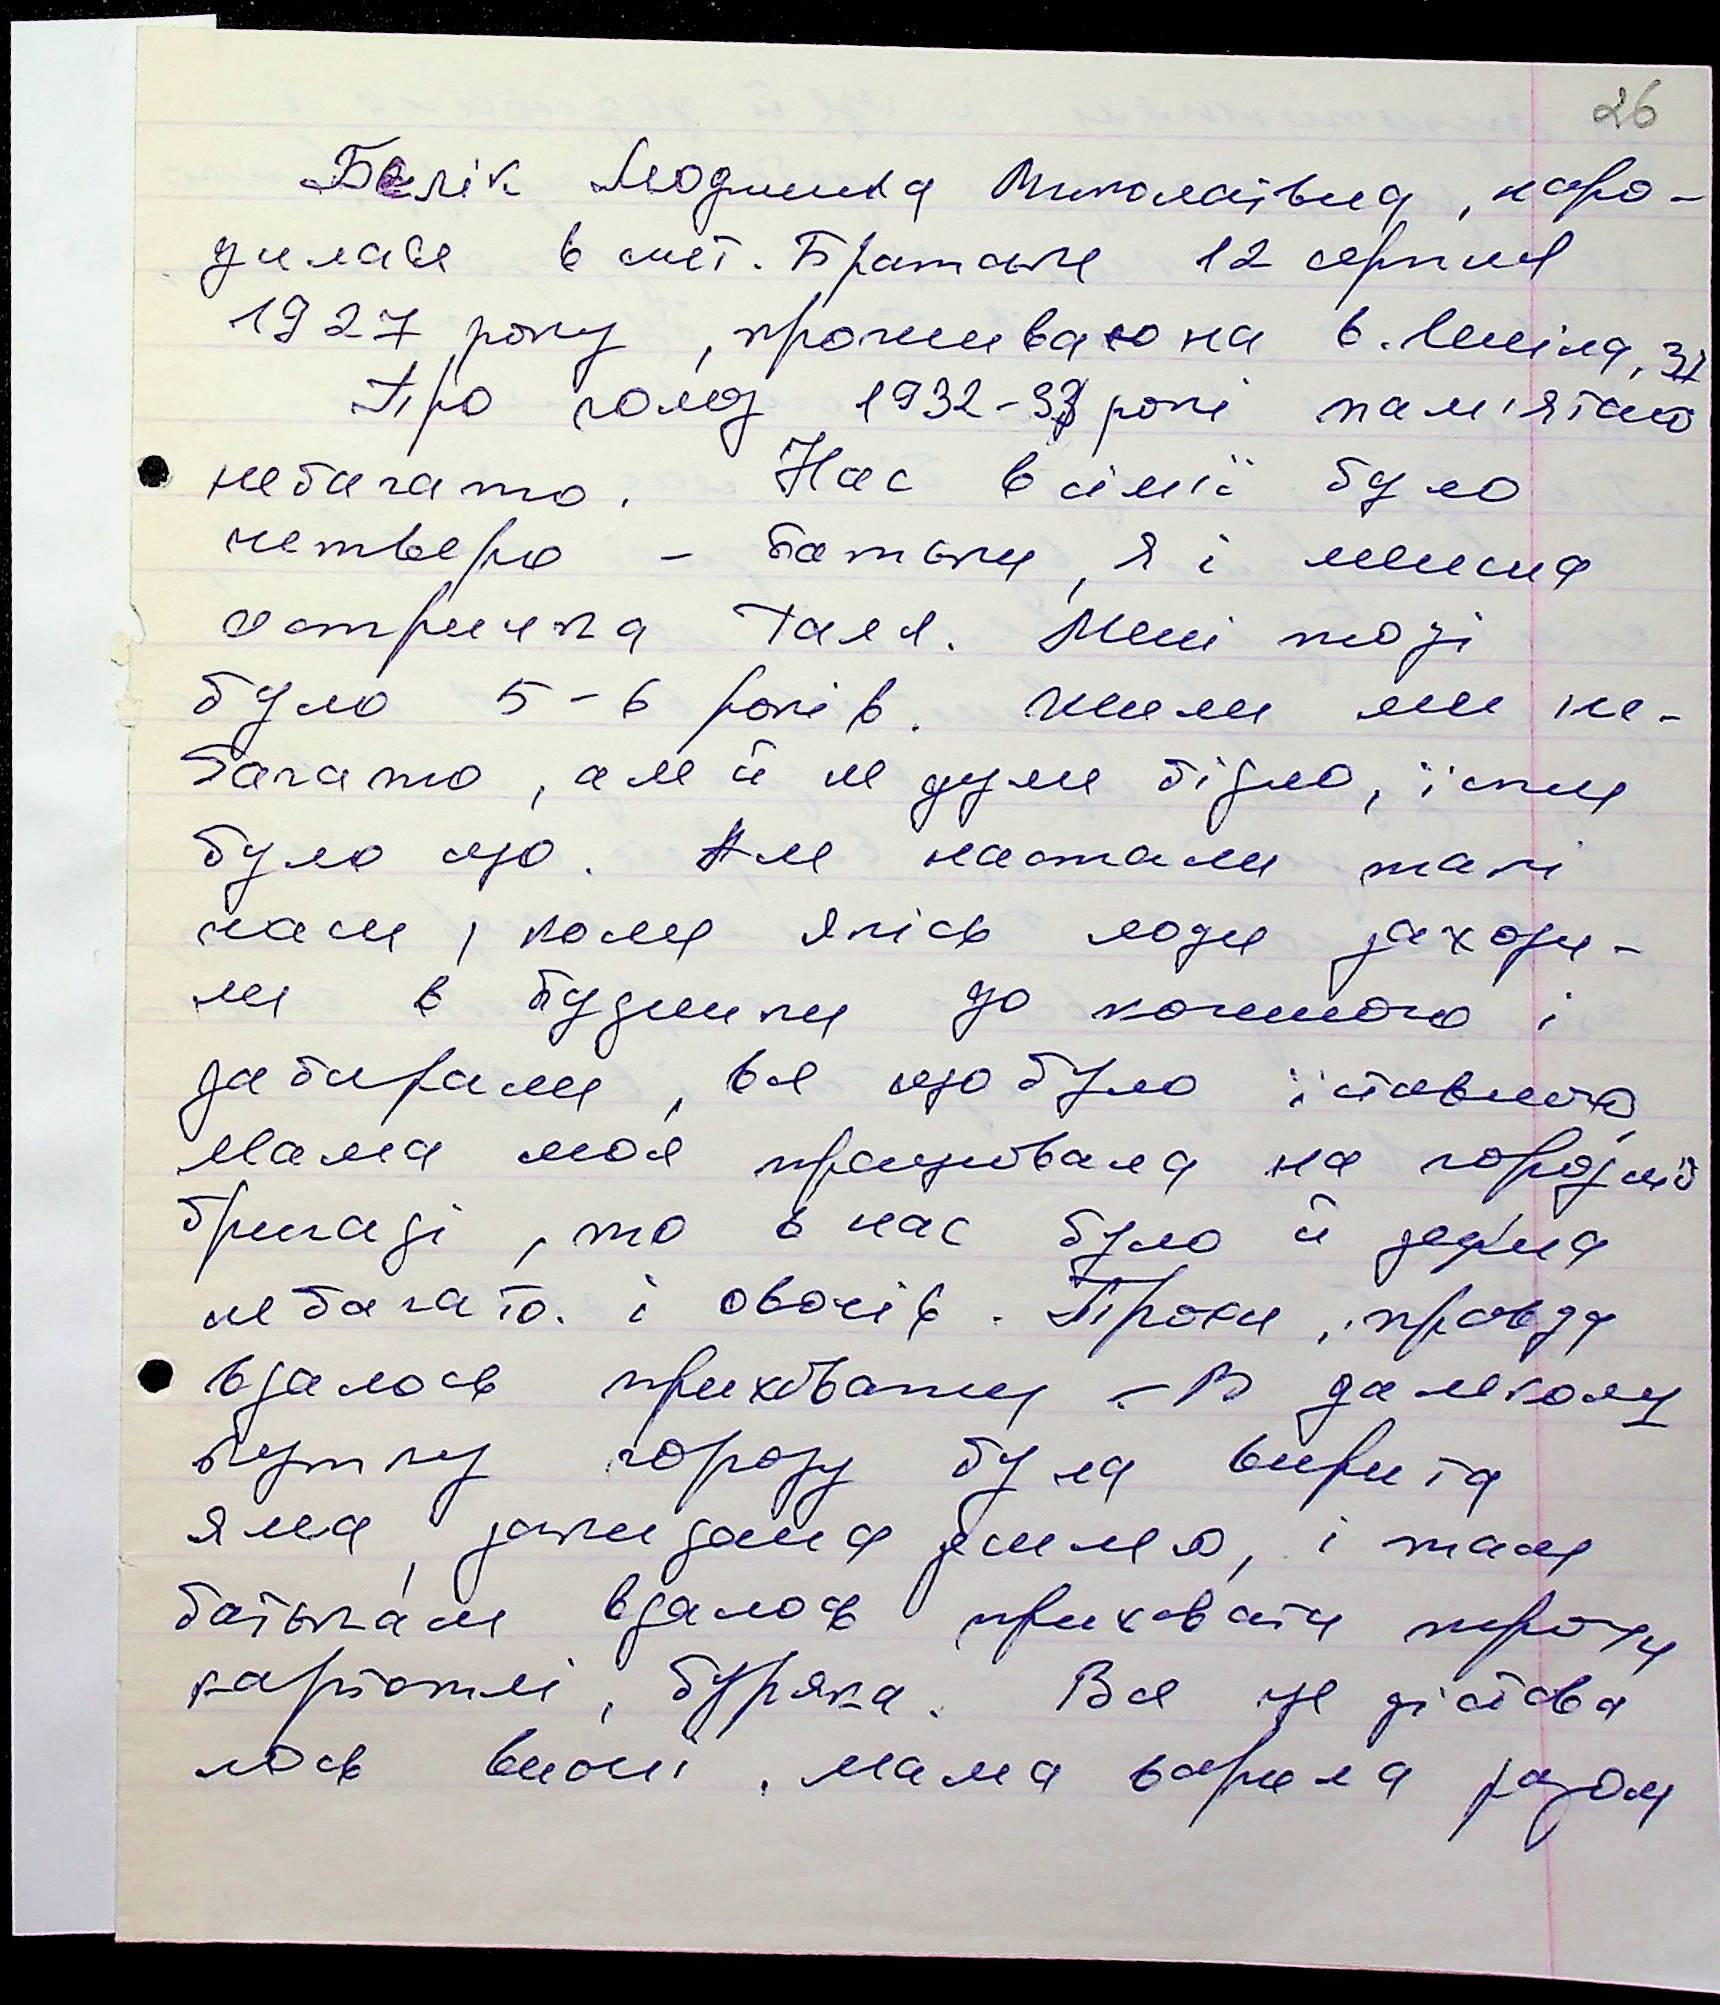 26
Белік Людмила Миколаївна, наро-
дилася в смт. Братське 12 серпня
1927 року, проживаю на в. Леніна, 31
Про голод 1932-33 років пам'ятаю
небагато. Нас в сім'ї було
четверо - батьки, я і менша
сестричка Галя. Мені тоді
було 5-6 років. Жили ми не-
багато, але й не дуже бідно, їсти
було що. Але настали такі
часи, коли якісь люди заходи-
ли в будинки до кожного і
забирали, все що було їстівного,
Мама моя працювала на городній
бригаді, то в нас було й зерна
небагато. і овочів. Трохи, правда
вдалось приховати. В далекому
кутку городу була вирита
яма, закидана зіллям, і там
батькам вдалось приховати трохи
картоплі, буряка. Все це діста́ва
лось вночі, мама варила разом